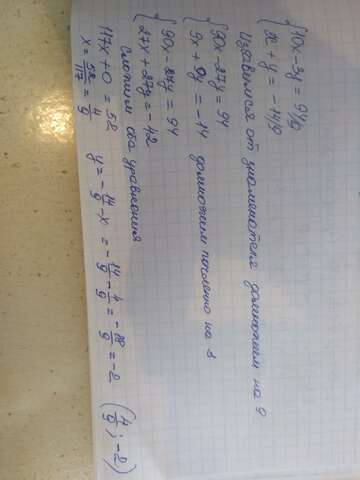 {10x - 3y = 94/9
{x + y = -14/9
Избавимся от знаменателя домножим на 9
{90x - 27y = 94
{9x + 9y = -14 домножим почленно на 3
{90x - 27y = 94
{27x + 27y = -42
сложим оба уравнения
117x + 0 = 52
x = 52/117 = 4/9 y = -14/9 - x = -14/9 - 4/9 = -18/9 = -2 (4/9; -2)